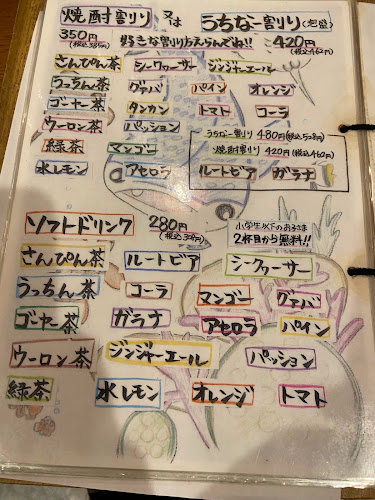 焼酎割り 又は うちなー割り(泡盛)
350円 (税込385円) 好きな割り方えらんでね!! 420円 (税込462円)
さんぴん茶 シークヮーサー ジンジャーエール
うっちん茶 グァバ パイン オレンジ
ゴーヤー茶 タンカン トマト コーラ
ウーロン茶 パッション
緑茶 マンゴー
水レモン アセロラ
うちなー割り 480円(税込528円)
焼酎割り 420円(税込460円)
ルートビア ガラナ
ソフトドリンク 280円 (税込308円)
小学生以下のお子さま
2杯目から無料!!
さんぴん茶 ルートビア シークヮーサー
うっちん茶 コーラ マンゴー グァバ
ゴーヤー茶 ガラナ アセロラ パイン
ウーロン茶 ジンジャーエール パッション
緑茶 水レモン オレンジ トマト